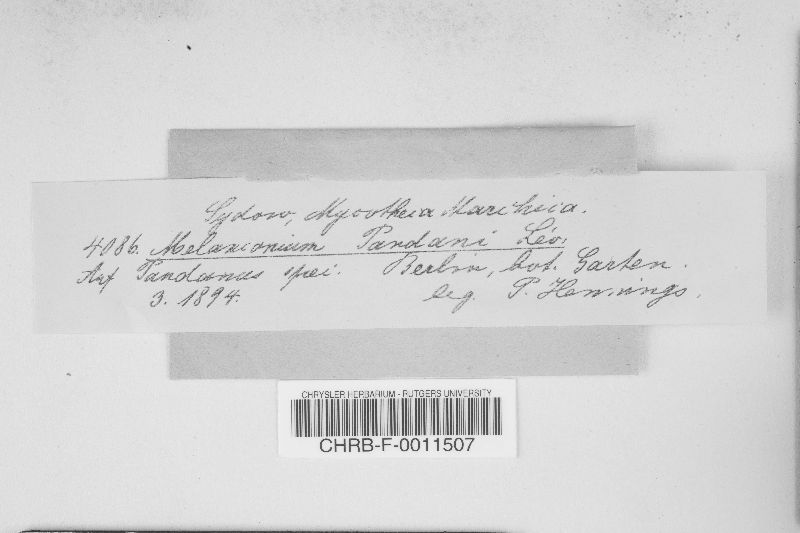 Sydow, Mycotheca Marchica.
4086. Melanconium Pandani Lév.
Auf Pandanus spei. Berlin, bot. Garten.
3. 1894. leg. P. Hennings.
CHRYSLER HERBARIUM - RUTGERS UNIVERSITY
CHRB-F-0011507